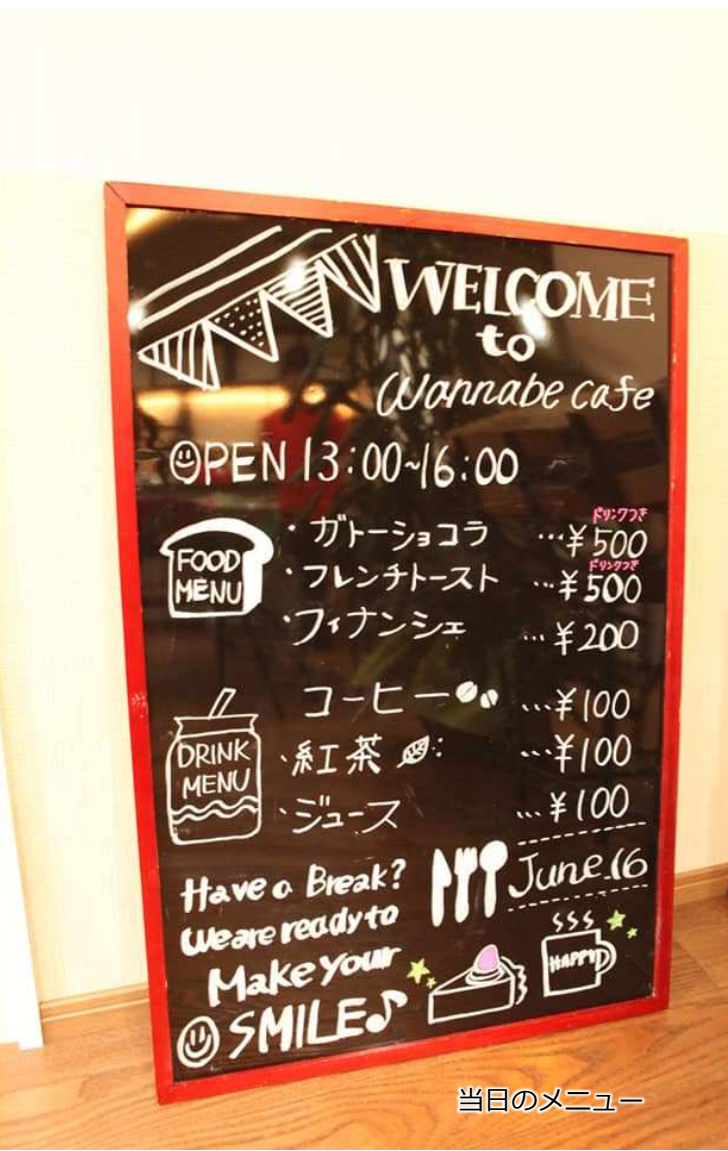 WELCOME
to
Wannabe cafe
OPEN 13:00~16:00
FOOD
MENU
・ガトーショコラ …¥500 ドリンクつき
・フレンチトースト …¥500 ドリンクつき
・フィナンシェ …¥200
DRINK
MENU
コーヒー …¥100
・紅茶 …¥100
・ジュース …¥100
Have a Break?
We are ready to
Make your
SMILE♪
June.16
HAPPY
当日のメニュー